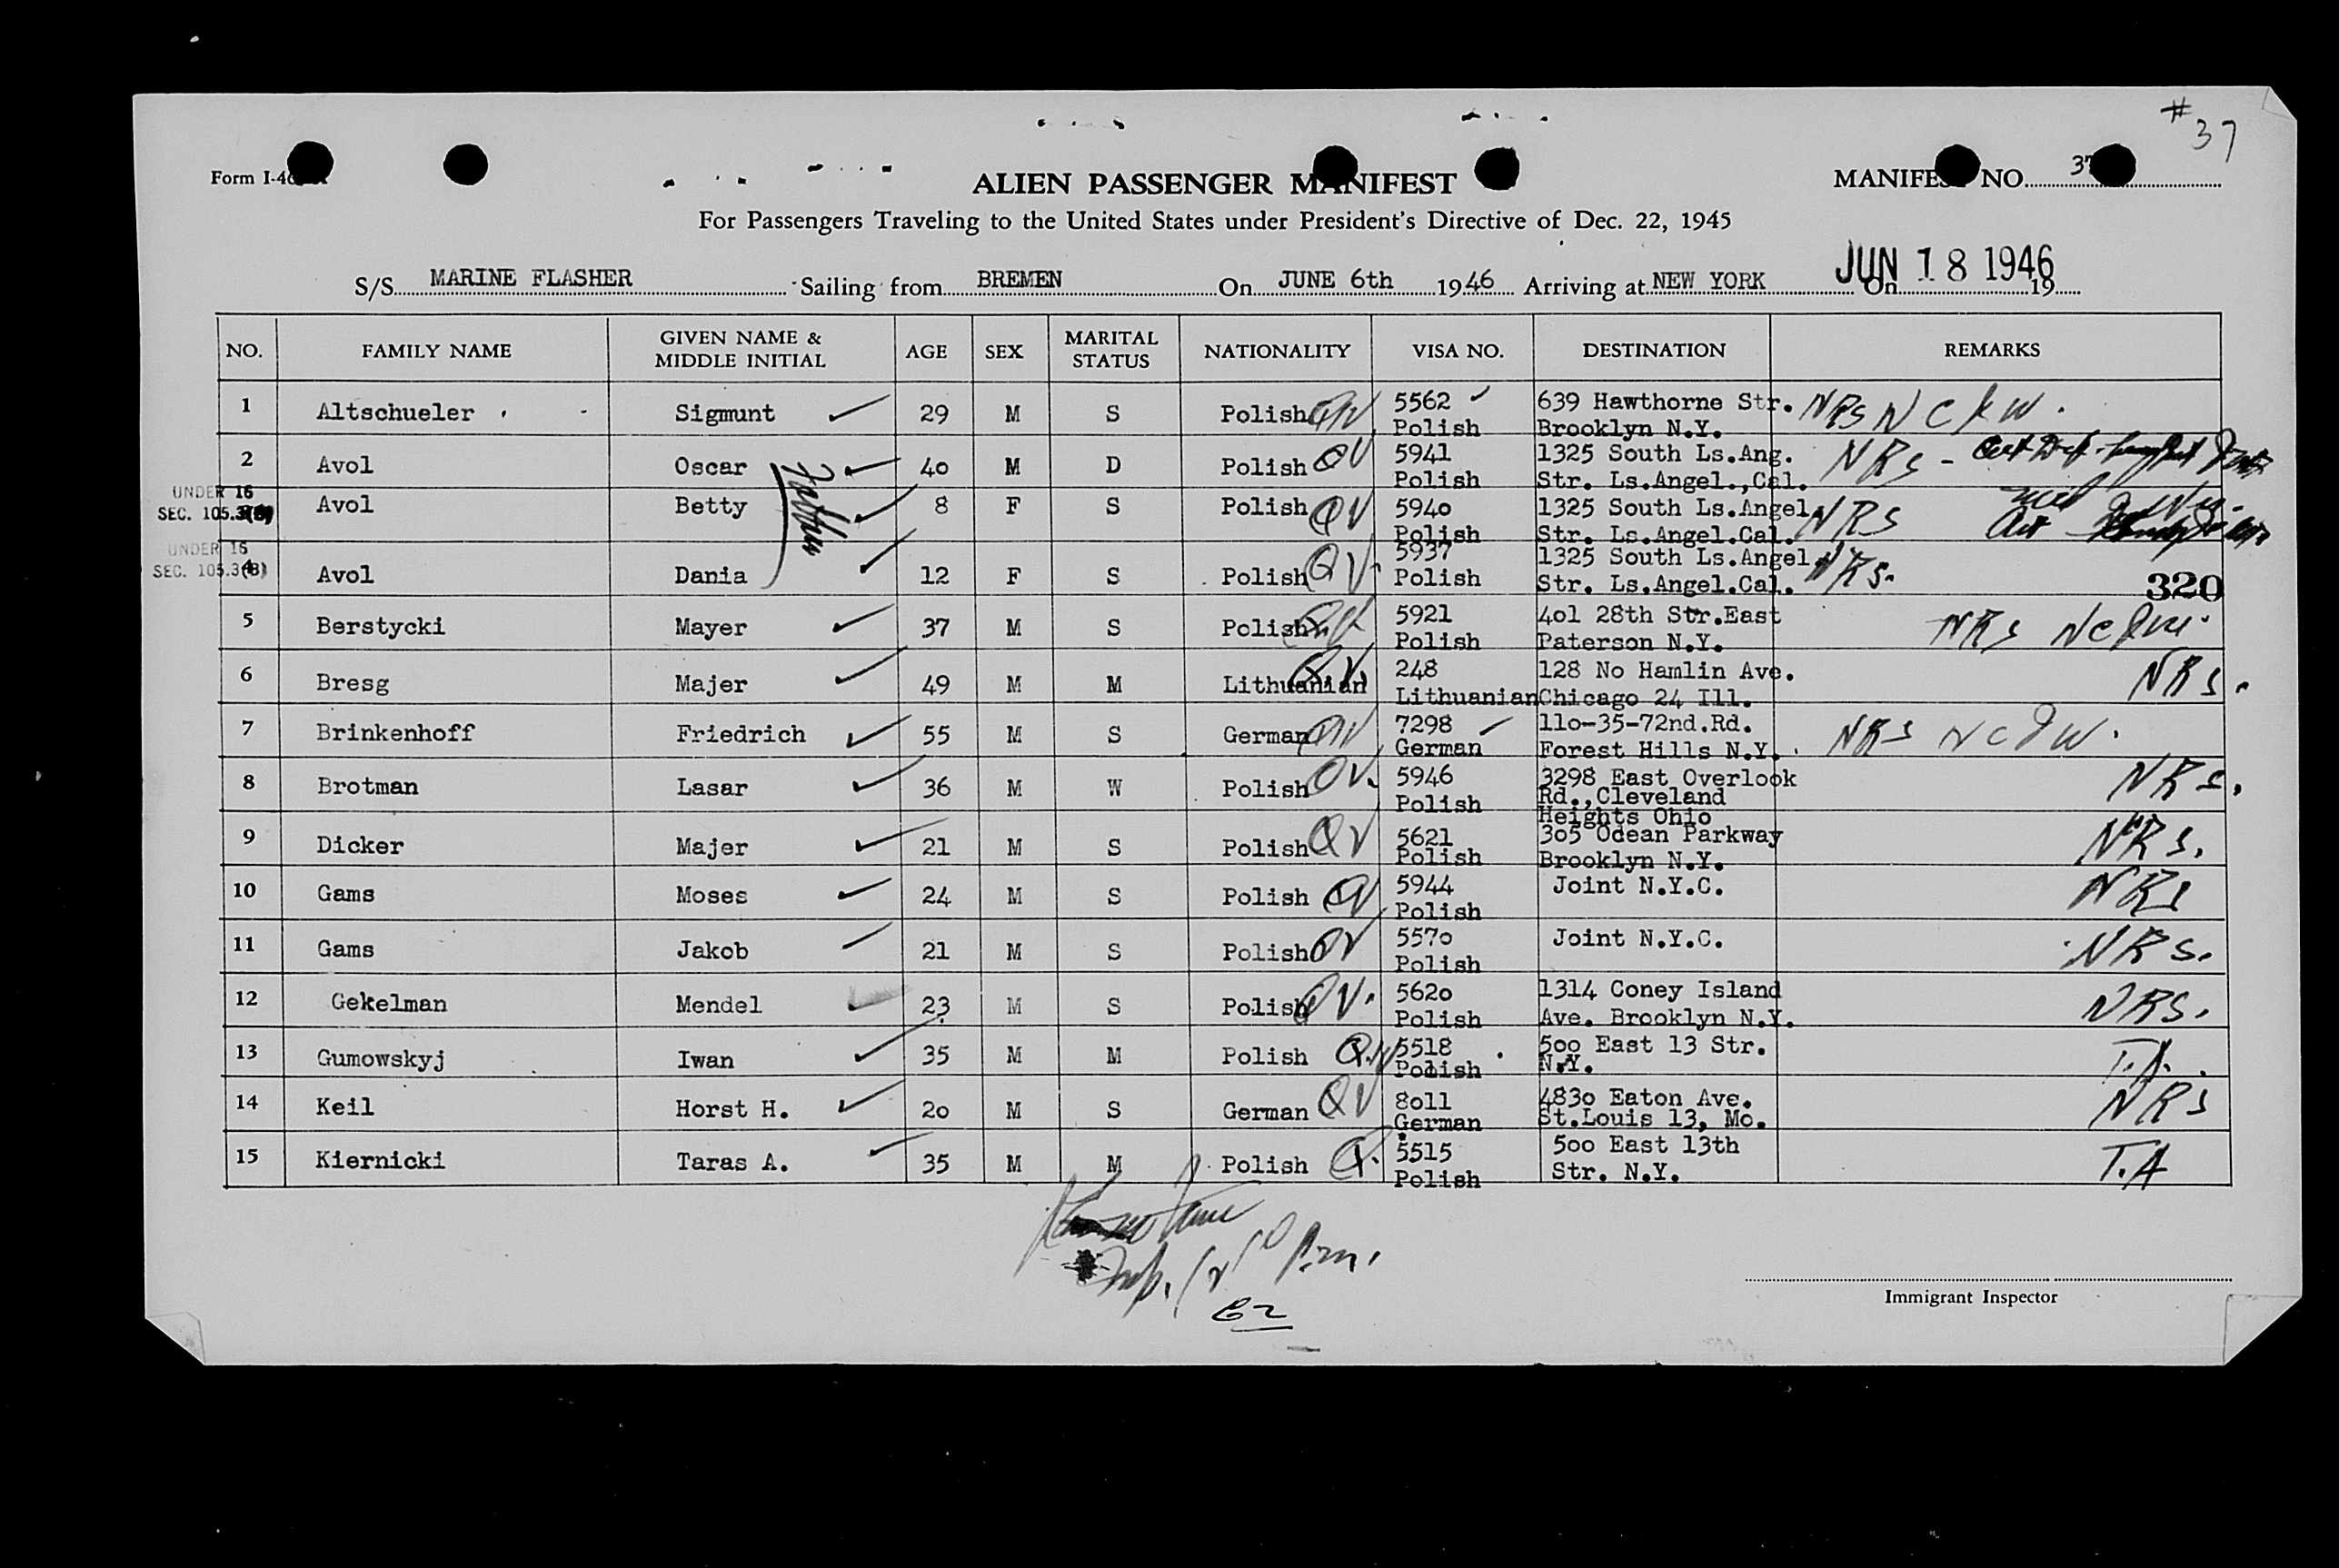 # 37
Form I-4
ALIEN PASSENGER MANIFEST
MANIFEST NO. 37
For Passengers Traveling to the United States under President's Directive of Dec. 22, 1945
S/S MARINE FLASHER Sailing from BREMEN On JUNE 6th 1946 Arriving at NEW YORK On JUN 18 1946 19
NO. FAMILY NAME GIVEN NAME & MIDDLE INITIAL AGE SEX MARITAL STATUS NATIONALITY VISA NO. DESTINATION REMARKS
1 Altschueler Sigmunt 29 M S Polish QV 5562 639 Hawthorne Str. NRS
Polish Brooklyn N.Y.
2 Avol Oscar 40 M D Polish QV 5941 1325 South Ls.Ang. NRS
Polish Str. Ls.Angel.,Cal.
Father
UNDER 16
SEC. 105.3
Avol Betty 8 F S Polish QV 5940 1325 South Ls.Angel. NRS
Polish Str. Ls.Angel.Cal.
UNDER 16
SEC. 105.3(B)
4 Avol Dania 12 F S Polish QV 5937 1325 South Ls.Angel. NRS.
Polish Str. Ls.Angel.Cal.
320
5 Berstycki Mayer 37 M S Polish 5921 4o1 28th Str.East NRS
Polish Paterson N.Y.
6 Bresg Majer 49 M M Lithuanian QV. 248 128 No Hamlin Ave. NRS.
Lithuanian Chicago 24 Ill.
7 Brinkenhoff Friedrich 55 M S German QV 7298 11o-35-72nd.Rd. NRS
German Forest Hills N.Y.
8 Brotman Lasar 36 M W Polish QV. 5946 3298 East Overlook NRS.
Polish Rd.,Cleveland
Heights Ohio
9 Dicker Majer 21 M S Polish QV 5621 3o5 Odean Parkway NRS.
Polish Brooklyn N.Y.
10 Gams Moses 24 M S Polish QV 5944 Joint N.Y.C. NRS
Polish
11 Gams Jakob 21 M S Polish QV 557o Joint N.Y.C. NRS.
Polish
12 Gekelman Mendel 23 M S Polish QV. 562o 1314 Coney Island NRS.
Polish Ave. Brooklyn N.Y.
13 Gumowskyj Iwan 35 M M Polish QV 5518 5oo East 13 Str. T.A.
Polish N.Y.
14 Keil Horst H. 2o M S German QV 8o11 483o Eaton Ave. NRS
German St.Louis 13, Mo.
15 Kiernicki Taras A. 35 M M Polish 5515 5oo East 13th T.A
Polish Str. N.Y.
Immigrant Inspector